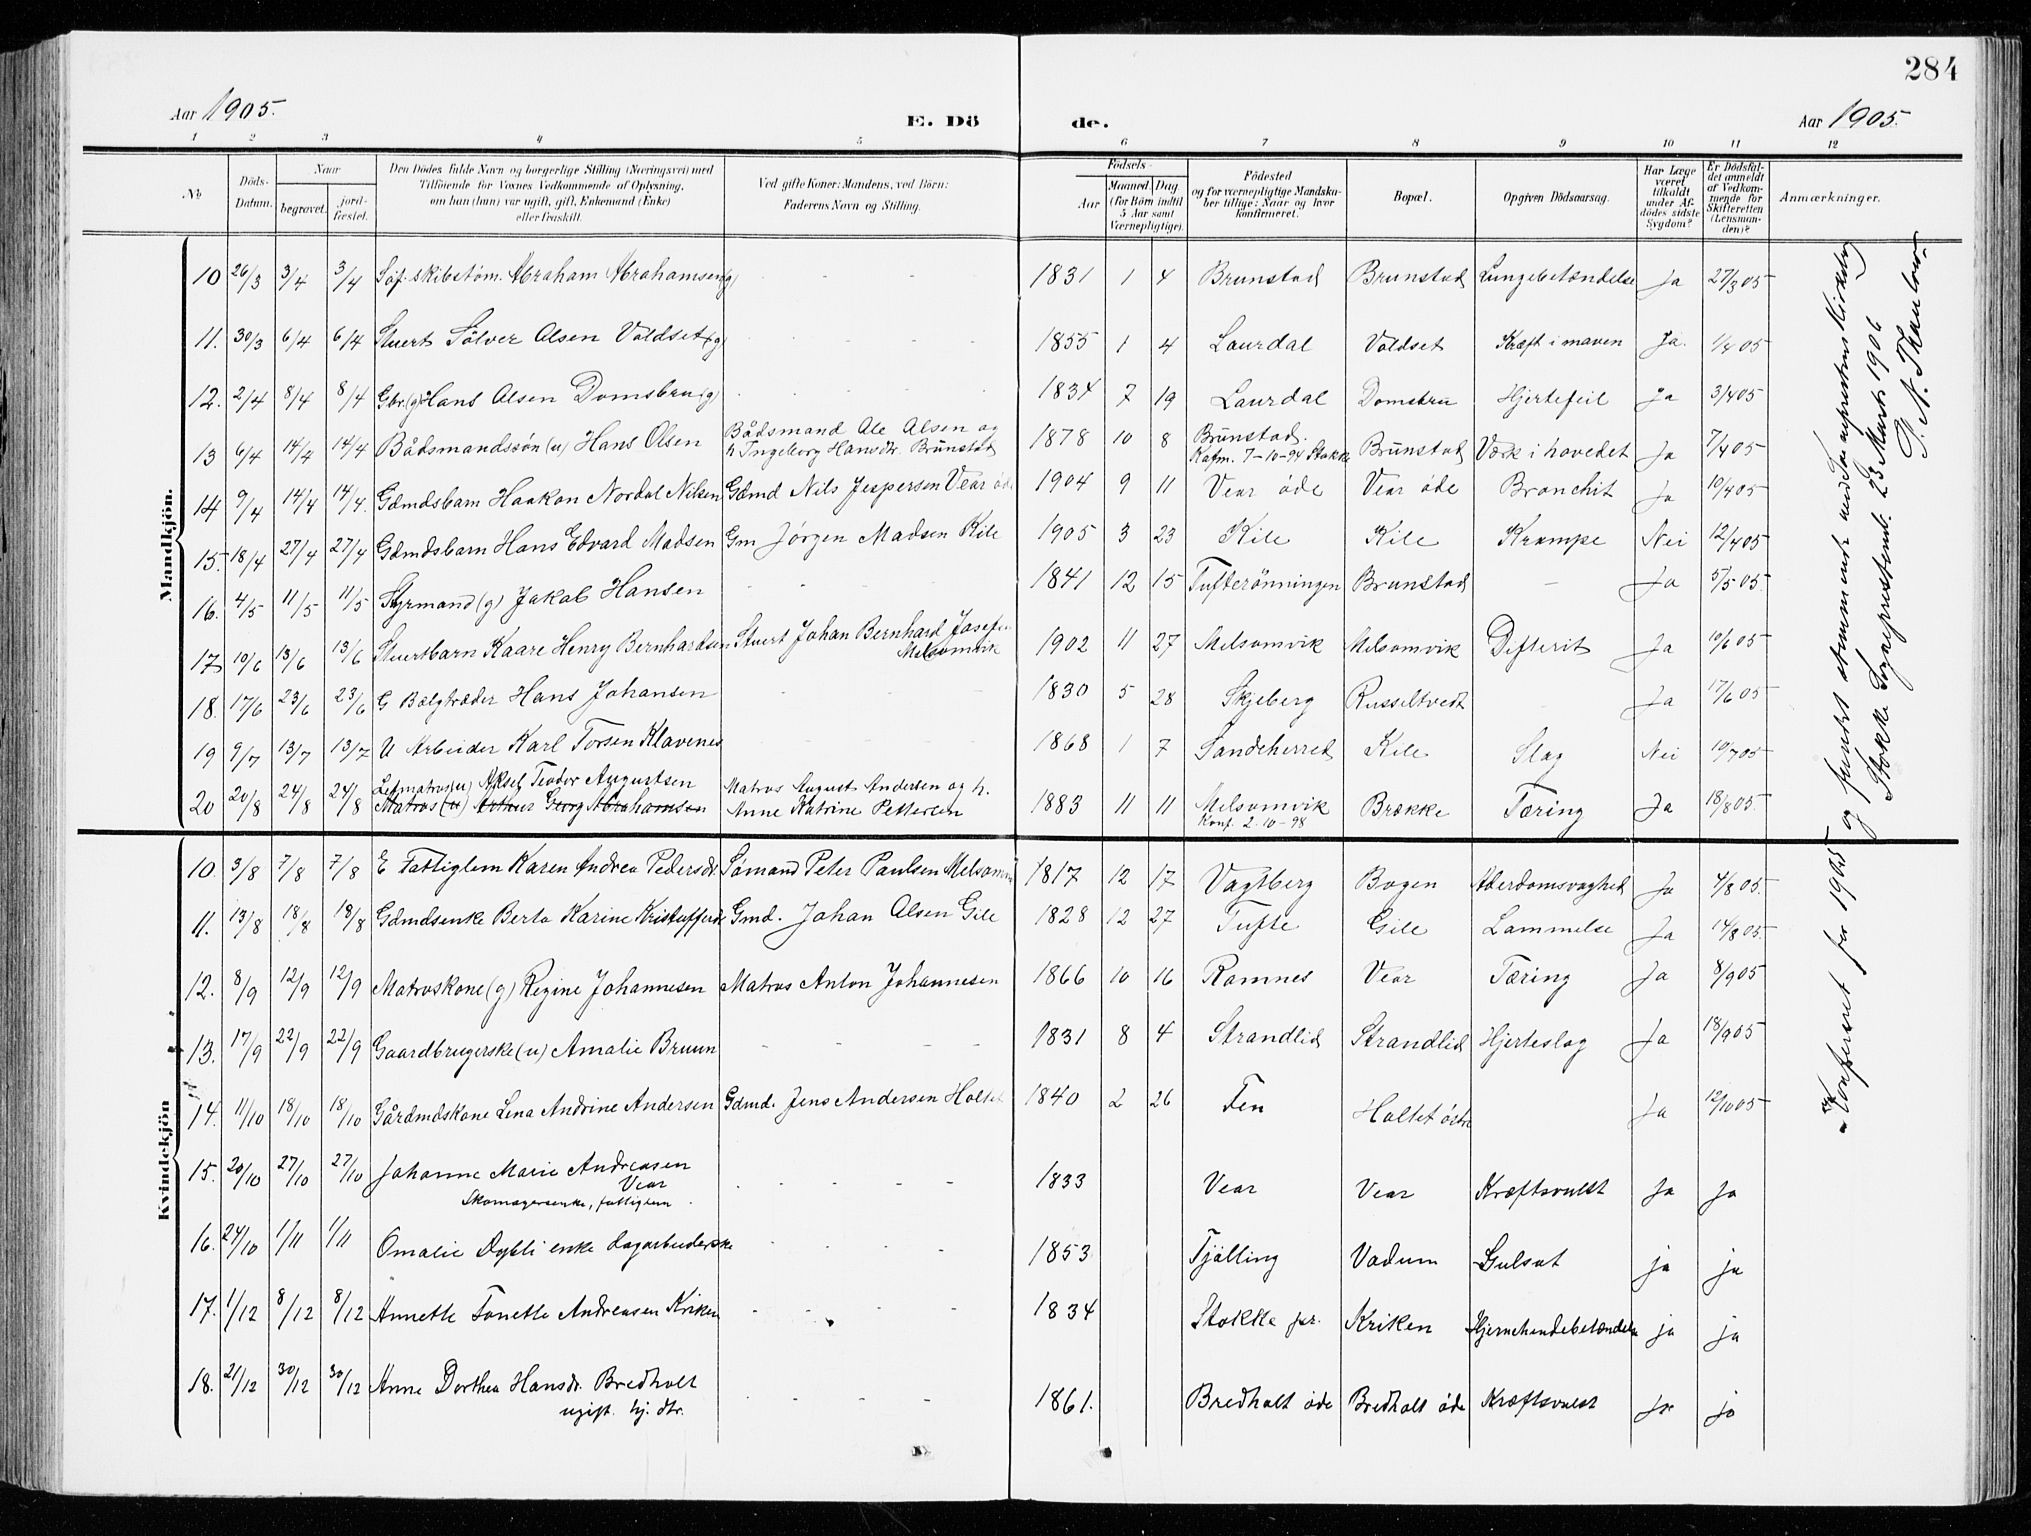 284
Aar 1905.
E. Dö
de.
Aar 1905.
1 2 3 4 5 6 7 8 9 10 11 12
No
Döds-Datum.
Naar
begravet.
jord-fæstet.
Den Dödes fulde Navn og borgerlige Stilling (Næringsvei) med
Tilföiende for Voxnes Vedkommende af Oplysning,
om han (hun) var ugift, gift, Enkemand (Enke)
eller fraskilt.
Ved gifte Koner: Mandens, ved Börn:
Faderens Navn og Stilling.
Födsels-
Aar
Maaned. Dag
(for Börn indtil
5 Aar samt
Værnepligtige).
Födested
og for værnepligtige Mandska-
ber tillige: Naar og hvor
konfirmeret.
Bopæl.
Opgiven Dödsaarsag.
Har Læge
været
tilkaldt
under Af-
dödes sidste
Sygdom?
Er Dödsfal-
det anmeldt
af Vedkom-
mende for
Skifteretten
(Lensman-
den)?
Anmærkninger.
Mandkjön.
10 26/3 3/4 3/4 Söf. skibstøm. Abraham Abrahamsen (g) - - - 1831 1 4 Brunstad Brunstad Lungebetændelse Ja 27/3 05
11. 30/3 6/4 6/4 Stuert Sölver Olsen Valdset (g) - - - 1855 1 4 Laurdal Valdset Kræft i maven Ja. 1/4 05
12. 2/4 8/4 8/4 Gbr. (g) Hans Olsen Domsbru (g) - - - 1834 7 19 Laurdal Domsbru Hjertefeil Ja 3/4 05
13 6/4 14/4 14/4 Bådsmandssön (u) Hans Olsen Bådsmand Ole Olsen og
h Ingeborg Hansdr. Brunstad 1878 10 8 Brunstad.
Kofm. 7-10-94 Stokke Brunstad Værk i hovedet Ja 7/4 05
14 9/4 14/4 14/4. Gdmdsbarn Haakon Nordal Nilsen Gdmd Nils Jespersen Vear öde 1904 9 11 Vear öde Vear öde Bronchit Ja 10/4 05
15. 18/4 27/4 27/4 Gdmdsbarn Hans Edvard Madsen Gm Jörgen Madsen Kile 1905 3 23 Kile Kile Krampe Nei 12/4 05
16. 4/5 11/5 11/5 Styrmand (g) Jakob Hansen - - - 1841 12 15 Tufterönningen Brunstad - Ja 5/5 05
17 10/6 13/6 13/6 Stuertbarn Kaare Henry Bernhardsen Stuert Johan Bernhard Josefsen
Melsomvik 1902 11 27 Melsomvik Melsomvik Difterit Ja 10/6 05
18. 17/6 23/6 23/6 G Bælgtræder Hans Johansen - - - 1830 5 28 Skjeberg Russeltvedt - Ja 17/6 05
19 9/7 13/7 13/7 U Arbeider Karl Torsen Klavenes - - - 1868 1 7 Sandeherred Kile Slag Nei 10/7 05
20 20/8 24/8 24/8 Letmatros (u) Aksel Teodor Augustsen
Matros (u) Arthur Georg Abrahamsen
Matros August Andersen og h.
Anne Katrine Pettersen 1883 11 11 Melsomvik
Konf. 2.10-98 Brække Tæring Ja 18/8 05.
Kvindekjön
10. 3/8 7/8 7/8 E Fattiglem Karen Andrea Pedersdr. Sømand Peter Paulsen Melsomv 1817 12 17 Vagtberg Bogen Alderdomsvaghed Ja 4/8 05.
11. 13/8 18/8 18/8 Gdmdsenke Berta Karine Kristoffersdr Gmd. Johan Olsen Gile 1828 12 27 Tufte Gile Lammelse Ja 14/8 05.
12. 8/9 12/9 12/9 Matroskone (g) Regine Johannesen Matros Anton Johannesen 1866 10 16 Ramnes Vear Tæring Ja 8/9 05
13. 17/9 22/9 22/9 Gaardbrugerske (u) Amalie Bruun - - - 1831 8 4 Strandlid Strandlid Hjerteslag Ja 18/9 05
14. 11/10 18/10 18/10 Gårdmdskone Lena Andrine Andersen Gdmd. Jens Andersen Holtet 1840 2 26 Fen Holtet östre Ja 12/10 05
15. 20/10 27/10 27/10 Johanne Marie Andreasen
Vear
Skomagerenke, fattiglem. - - - 1833 Vear Vear Kræftsvulst Ja Ja
16. 24/10 1/11 1/11 Omalie Dybli enke dagarbeiderske - - - 1853 Tjölling Vadum Gulsot ja ja
17. 1/12 8/12 8/12 Annette Tonette Andreasen Kriken - - - 1834 Stokke pr. Kriken Hjernehindebetændelse ja ja
18. 21/12 30/12 30/12 Anne Dorthea Hansdr. Bredholt
ugift. hj. dtr. - - - 1861. Bredholt öde Bredholt öde Kræftsvulst Ja ja
Konfereret for 1905 og fundet stemmende med Sogneprestens Kirkebog
Stokke Sogneprestemb. 23 Marts 1906
P. N. Thaulow